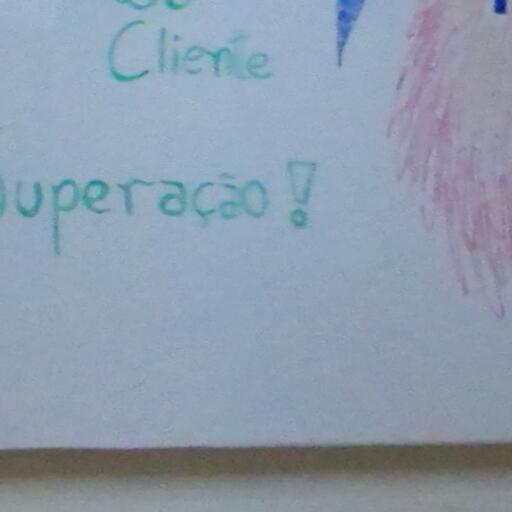 Cliente
uperação!